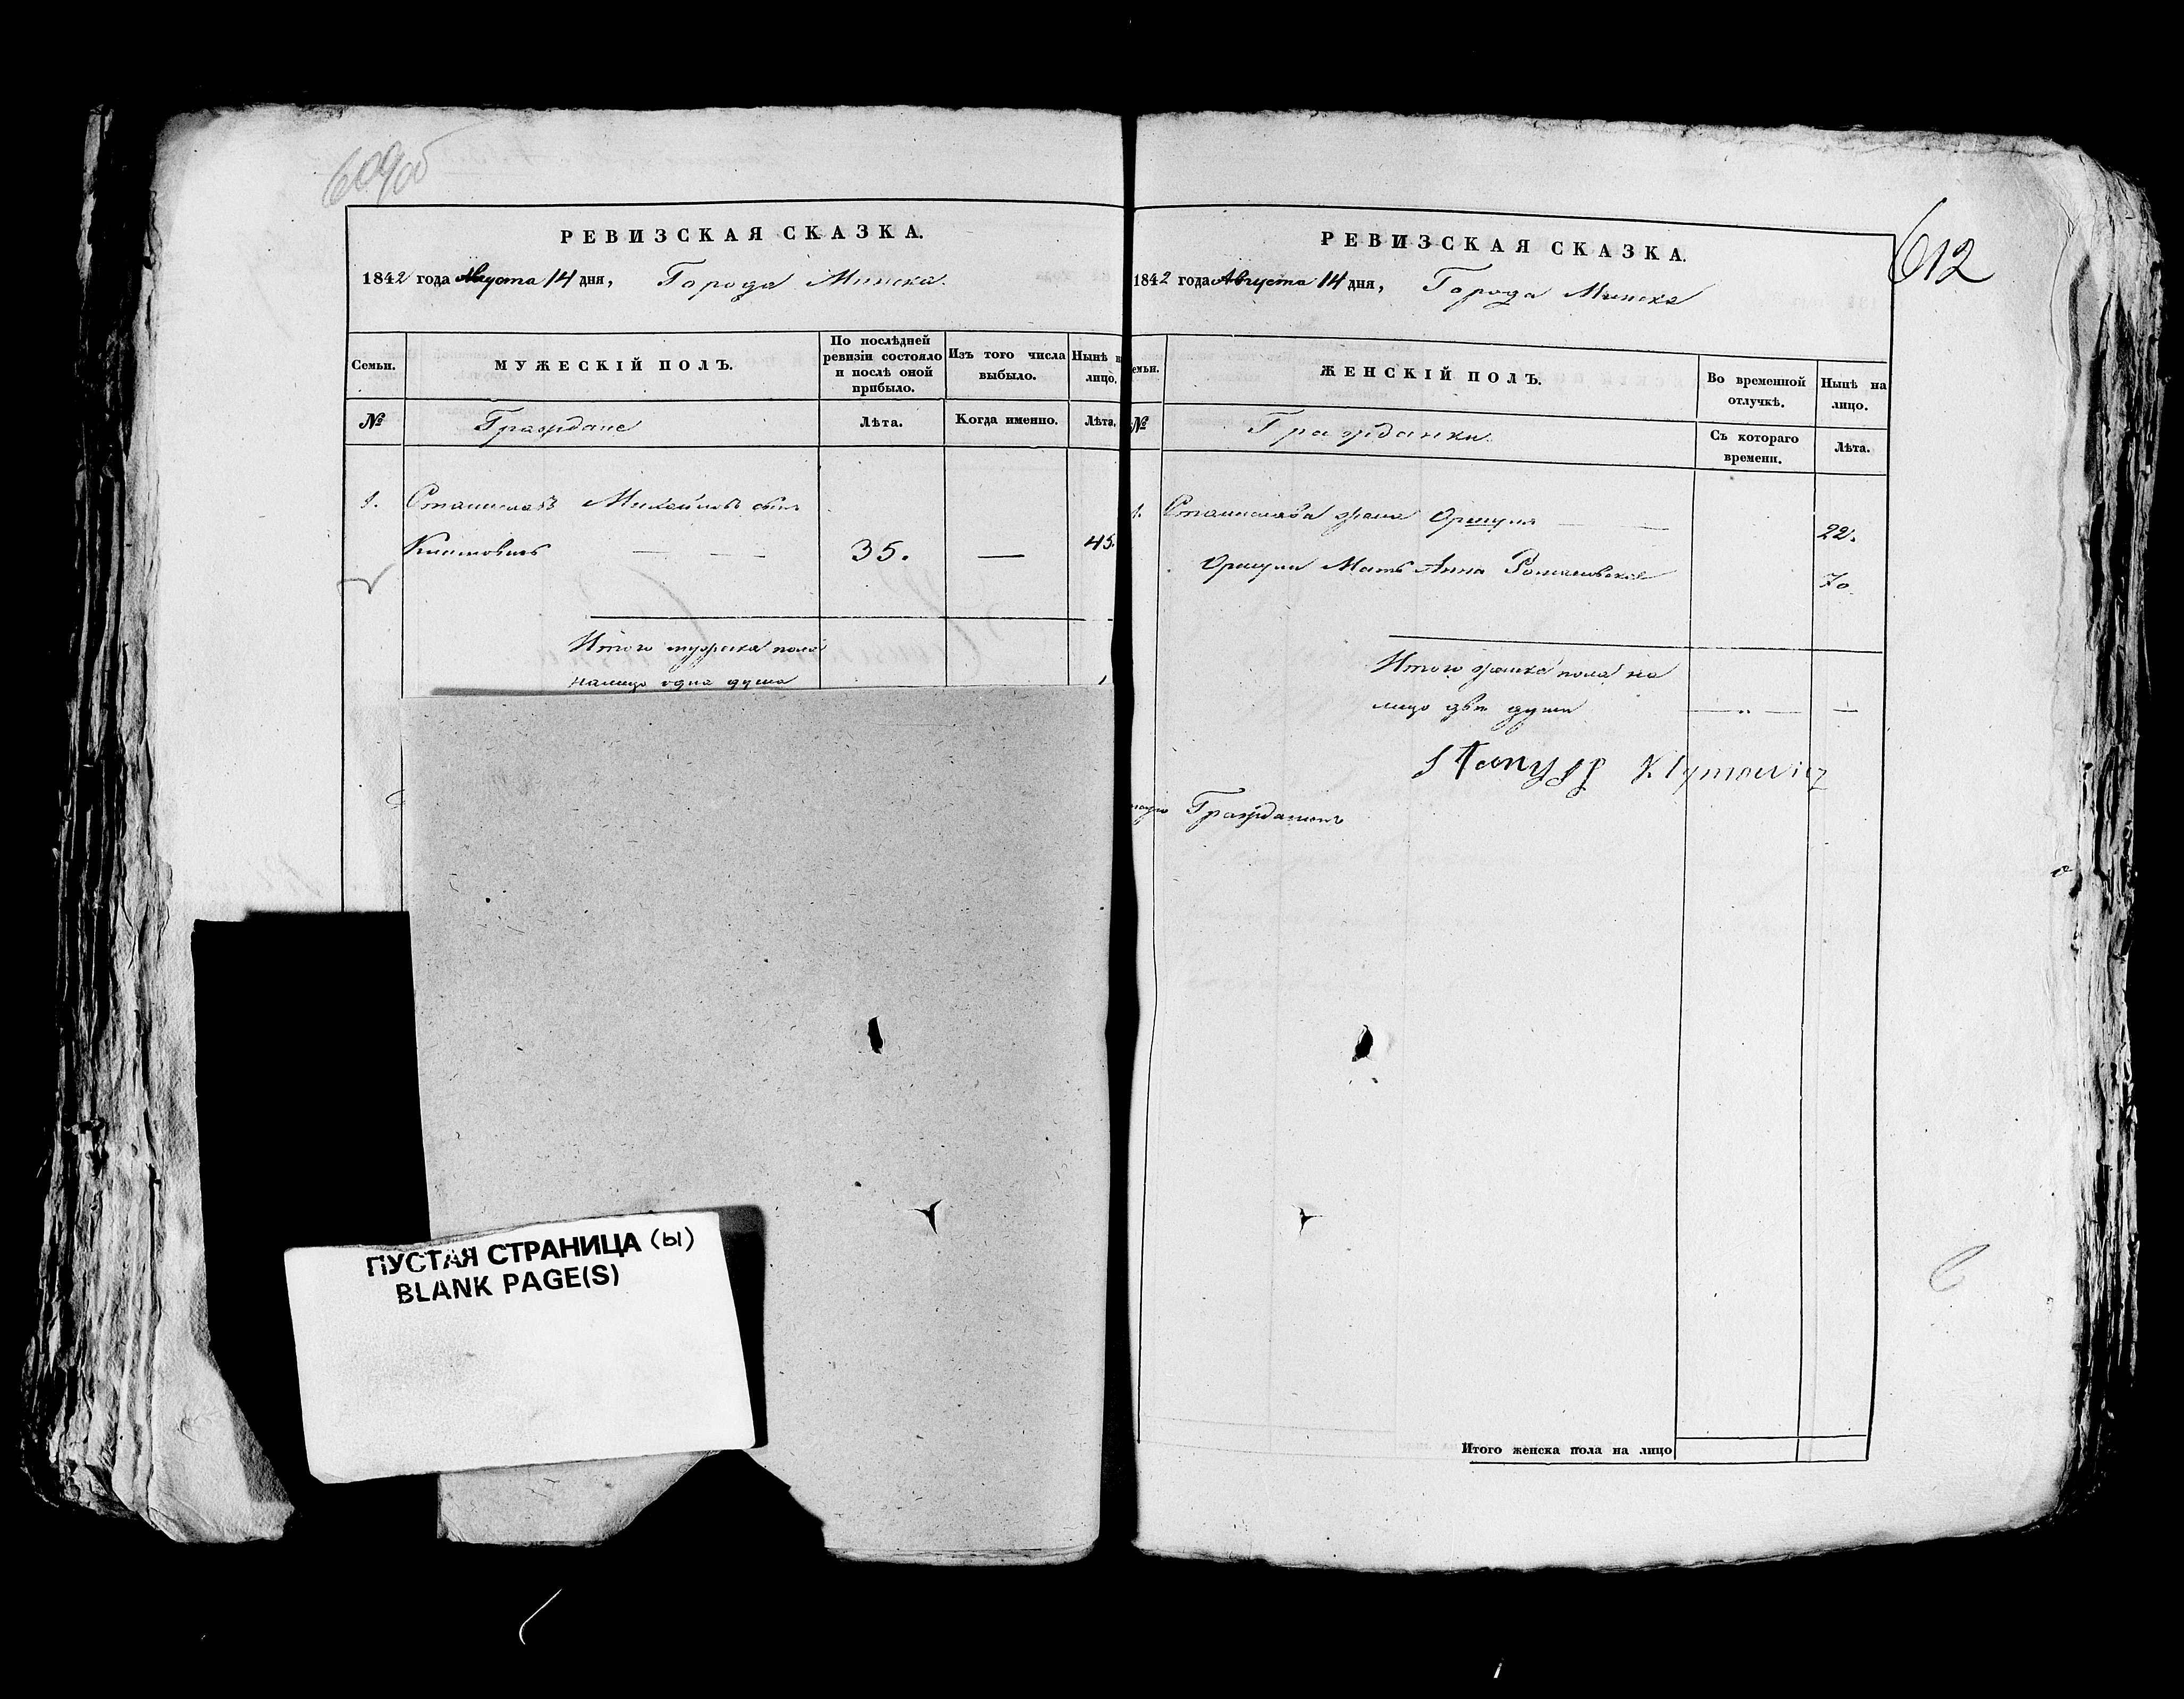 609об
РЕВИЗСКАЯ СКАЗКА.
1842 года Августа 14 дня, Города Минска.
Семьи.
МУЖЕСКІЙ ПОЛЪ.
По послѣдней ревизіи состояло и послѣ оной прибыло.
Изъ того числа выбыло.
Нынѣ н
лицо.
№
Граждане
Лѣта.
Когда именно.
Лѣта.
1. Станиславъ Михайловъ сынъ
Климовичъ — — — 35. — 45.
Итого мужеска пола
налицо одна душа 1
ПУСТАЯ СТРАНИЦА (Ы)
BLANK PAGE(S)
612
РЕВИЗСКАЯ СКАЗКА.
1842 года Августа 14 дня, Города Минска
емьи.
ЖЕНСКІЙ ПОЛЪ.
Во временной отлучкѣ.
Нынѣ на лицо.
№
Гражданки.
Съ котораго времени.
Лѣта.
1. Станислава жена — — 22.
Мать Анна 70.
Итого женска пола на
лицо две души — „ — —
Klymowicz
Гражданинъ
Итого женска пола на лицо